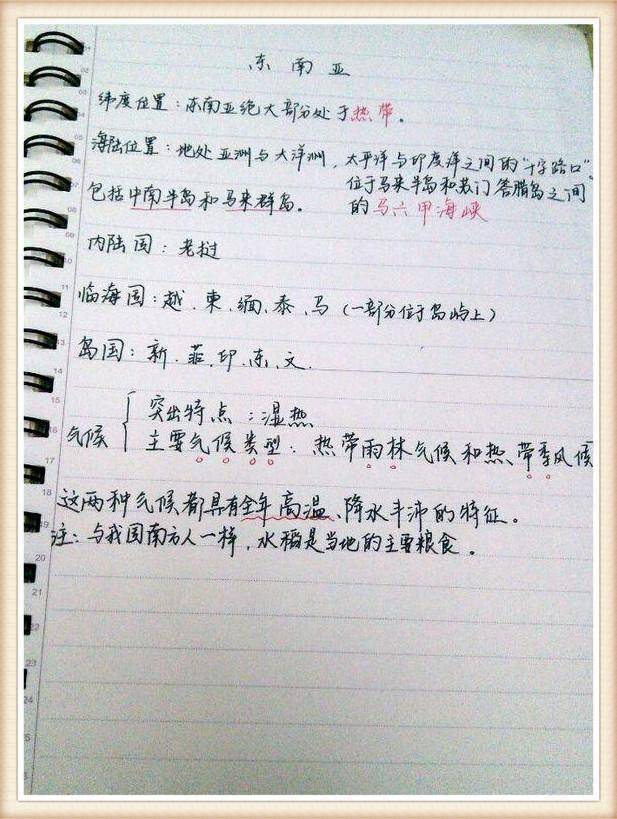 东南亚
纬度位置：东南亚绝大部分处于热带。
海陆位置：地处亚洲与大洋洲，太平洋与印度洋之间的“十字路口”。
位于马来半岛和苏门答腊岛之间
的马六甲海峡
包括中南半岛和马来群岛。
内陆国：老挝
临海国：越、柬、缅、泰、马（一部分位于岛屿上）
岛国：新、菲、印、东、文.
气候
突出特点：湿热
主要气候类型：热带雨林气候和热带季风候
这两种气候都具有全年高温、降水丰沛的特征。
注：与我国南方人一样，水稻是当地的主要粮食。